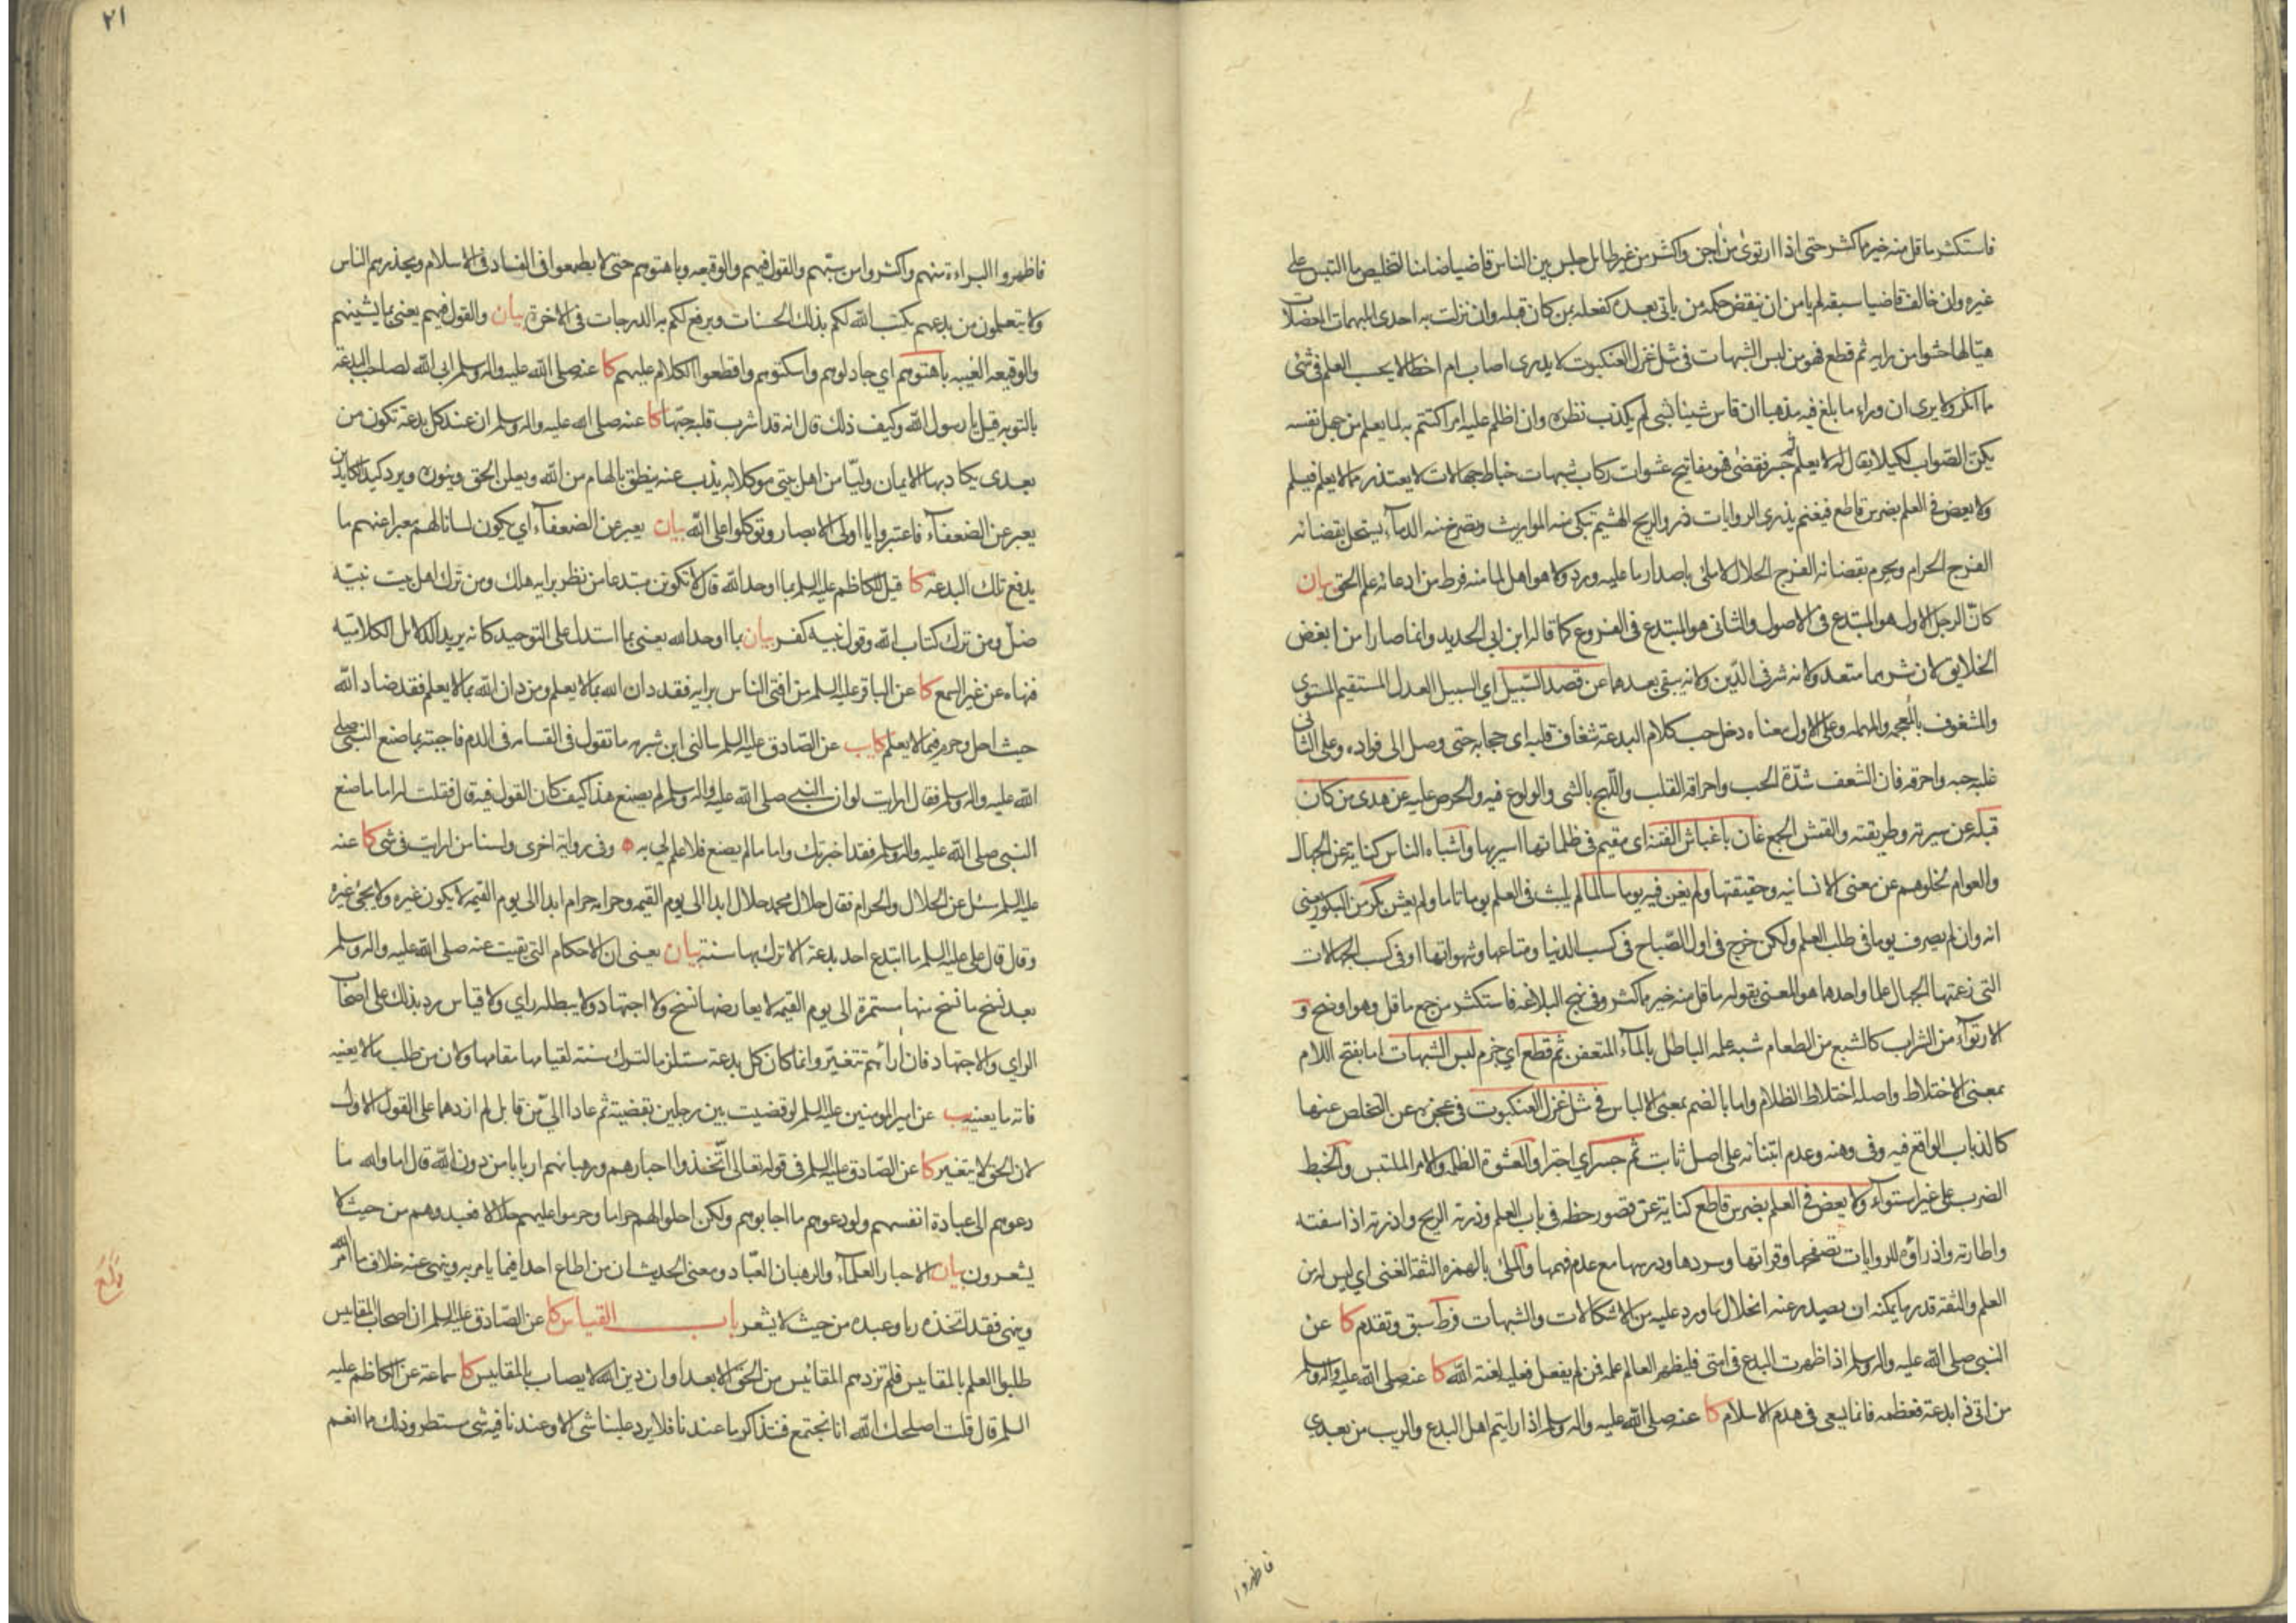 فاستكثر ما قل منه خير مما كثر حتى اذا ارتوى من اجن واكثر من غير طايل جلس بين الناس قاضيا ضامنا لتخليص ما التبس على
غيره وان خالف قاضيا سبقه لم يامن ان ينقض حكمه من ياتى بعده كفعله بمن كان قبله وان نزلت به احدى المبهمات المعضلات
هيا لها حشوا من رايه ثم قطع فهو من لبس الشبهات فى مثل غزل العنكبوت لا يدرى اصاب ام اخطا لا يحسب العلم فى شئ
مما انكر ولا يرى ان وراء ما بلغ فيه مذهبا ان قاس شيئا بشئ لم يكذب نظره وان اظلم عليه امر اكتتم به لما يعلم من جهل نفسه
يكن الصواب لكيلا يقال له لا يعلم ثم جسر فقضى فهو مفاتيح عشوات ركاب شبهات خباط جهالات لا يعتذر مما لا يعلم فيسلم
ولا يعض فى العلم بضرس قاطع فيغنم يذرى الروايات ذرو الريح الهشيم تبكى منه المواريث وتصرخ منه الدماء يستحل بقضائه
الفرج الحرام ويحرم بقضائه الفرج الحلال لا ملئ باصدار ما عليه ورد ولا هو اهل لما منه فرط من ادعائه علم الحق بيان
كان الرجل الاول هو المبتدع فى الاصول والثانى هو المبتدع فى الفروع كما قاله ابن ابى الحديد وانما صارا من ابغض
الخلايق لان شرهما متعد ولانه شر فى الدين ولانه يبقى بعدهما عن قصد السبيل اى السبيل العدل المستقيم المستوى
والمشغوف بالمعجمه والمهمله وعلى الاول معناه دخل حب كلام البدعة شغاف قلبه اى حجابه حتى وصل الى فواده وعلى الثانى
غلبه حبه واحرقه فان الشعف شدة الحب واحراقه القلب واللهج بالشئ والولوع فيه والحرص عليه عن هدى من كان
قبله عن سيرته وطريقته والقمش الجمع غان باغباش الفتنة اى مقيم فى ظلماتها اسير بها واشباه الناس كناية عن الجهال
والعوام لخلوهم عن معنى الانسانيه وحقيقتها ولم يغن فيه يوما سالما لم يلبث فى العلم يوما تاما ولم يعش بكر من البكور يعنى
انه وان لم يصرف يوما فى طلب العلم ولكن خرج فى اول الصباح فى كسب الدنيا ومتاعها وشهواتها او فى كسب الجهالات
التى زعمتها الجهال علما واحدهما هو المعنى بقوله ما قل منه خير مما كثر وفى نهج البلاغه فاستكثر من جمع ما قل وهو اوضح و
الارتواء من الشراب كالشبع من الطعام شبه علمه الباطل بالماء المتعفن ثم قطع اى جزم لبس الشبهات اما بفتح اللام
بمعنى الاختلاط واصله اختلاط الظلام واما بالضم بمعنى الالباس فى مثل غزل العنكبوت فى عجزه عن التخلص عنها
كالذباب الواقع فيه وفى وهنه وعدم ابتنائه على اصل ثابت ثم جسر اى اجترا والعشوة الظلمه والامر الملتبس والخبط
الضرب على غير استواء ولا يعض فى العلم بضرس قاطع كناية عن قصور حظه فى باب العلم وذرته الريح واذرته اذا سفته
واطارته واذراؤه للروايات تصفحها وقراتها وسردها ودرسها مع عدم فهمها والملئ بالهمزه الثقة الغنى اى ليس له من
العلم والثقة قدر ما يمكنه ان يصدر عنه انحلال ما ورد عليه من الاشكالات والشبهات فرط سبق وتقدم كا عن
النبى صلى الله عليه واله وسلم اذا ظهرت البدع فى امتى فليظهر العالم علمه فمن لم يفعل فعليه لعنة الله كا عنه صلى الله عليه واله وسلم
من اتى ذا بدعة فعظمه فانما يسعى فى هدم الاسلام كا عنه صلى الله عليه واله وسلم اذا رايتم اهل البدع والريب من بعدى
فاظهروا
٢١
فاظهروا البراءة منهم واكثروا من سبهم والقول فيهم والوقيعه وباهتوهم حتى لا يطمعوا فى الفساد فى الاسلام ويحذرهم الناس
ولا يتعلمون من بدعهم يكتب الله لكم بذلك الحسنات ويرفع لكم به الدرجات فى الاخرة بيان والقول فيهم يعنى بما يشينهم
والوقيعه الغيبه باهتوهم اى جادلوهم واسكتوهم واقطعوا الكلام عليهم كا عنه صلى الله عليه واله وسلم ابى الله لصاحب البدعة
بالتوبه قيل يا رسول الله وكيف ذلك قال انه قد اشرب قلبه حبها كا عنه صلى الله عليه واله وسلم ان عند كل بدعة تكون من
بعدى يكاد بها الايمان وليا من اهل بيتى موكلا به يذب عنه ينطق بالهام من الله ويعلن الحق وينوره ويرد كيد الكايدين
يعبر عن الضعفاء فاعتبروا يا اولى الابصار وتوكلوا على الله بيان يعبر عن الضعفاء اى يكون لسانا لهم معبرا عنهم ما
يدفع تلك البدعة كا قيل للكاظم عليه السلم بما اوحد الله قال لا تكونن مبتدعا من نظر برايه هلك ومن ترك اهل بيت نبيه
ضل ومن ترك كتاب الله وقول نبيه كفر بيان بما اوحد الله يعنى بما استدل على التوحيد كانه يريد الدلائل الكلاميه
فنهاه عن غير السمع كا عن الباقر عليه السلم من افتى الناس برايه فقد دان الله بما لا يعلم ومن دان الله بما لا يعلم فقد ضاد الله
حيث احل وحرم فيما لا يعلم كا يب عن الصادق عليه السلم سالنى ابن شبرمه ما تقول فى القسامه فى الدم فاجبته بما صنع النبى صلى
الله عليه واله وسلم فقال ارايت لو ان النبى صلى الله عليه واله وسلم لم يصنع هذا كيف كان القول فيه قال فقلت له اما ما صنع
النبى صلى الله عليه واله وسلم فقد اخبرتك واما ما لم يصنع فلا علم لى به ه وفى رواية اخرى ولسنا من ارايت فى شئ كا عنه
عليه السلم سئل عن الحلال والحرام فقال حلال محمد حلال ابدا الى يوم القيمه وحرامه حرام ابدا الى يوم القيمه لا يكون غيره ولا يجئ غيره
وقال قال على عليه السلم ما ابتدع احد بدعة الا ترك بها سنة بيان يعنى ان الاحكام التى بقيت عنه صلى الله عليه واله وسلم
بعد نسخ ما نسخ منها مستمرة الى يوم القيمه لا يعارضها نسخ ولا اجتهاد ولا يبطله راى ولا قياس رد بذلك على اصحاب
الراى والاجتهاد فان ارائهم تتغير وانما كان كل بدعة مستلزما لترك سنة لقيامها مقامها ولان من طلب ما لا يعنيه
فاته ما يعنيه يب عن امير المومنين عليه السلم لو قضيت بين رجلين بقضية ثم عادا الى من قابل لم ازدهما على القول الاول
لان الحق لا يتغير كا عن الصادق عليه السلم فى قوله تعالى اتخذوا احبارهم ورهبانهم اربابا من دون الله قال اما والله ما
دعوهم الى عبادة انفسهم ولو دعوهم ما اجابوهم ولكن احلوا لهم حراما وحرموا عليهم حلالا فعبدوهم من حيث لا
يشعرون بيان الاحبار العلماء والرهبان العباد ومعنى الحديث ان من اطاع احدا فيما يامر به وينهى عنه خلاف ما امر الله
ونهى فقد اتخذه ربا وعبده من حيث لا يشعر باب القياس كا عن الصادق عليه السلم ان اصحاب المقاييس
طلبوا العلم بالمقاييس فلم تزدهم المقائيس من الحق الا بعدا وان دين الله لا يصاب بالمقاييس كا سماعة عن الكاظم عليه
السلم قال قلت اصلحك الله انا نجتمع فنتذاكر ما عندنا فلا يرد علينا شئ الا وعندنا فيه شئ مستطر وذلك مما انعم
بلغ